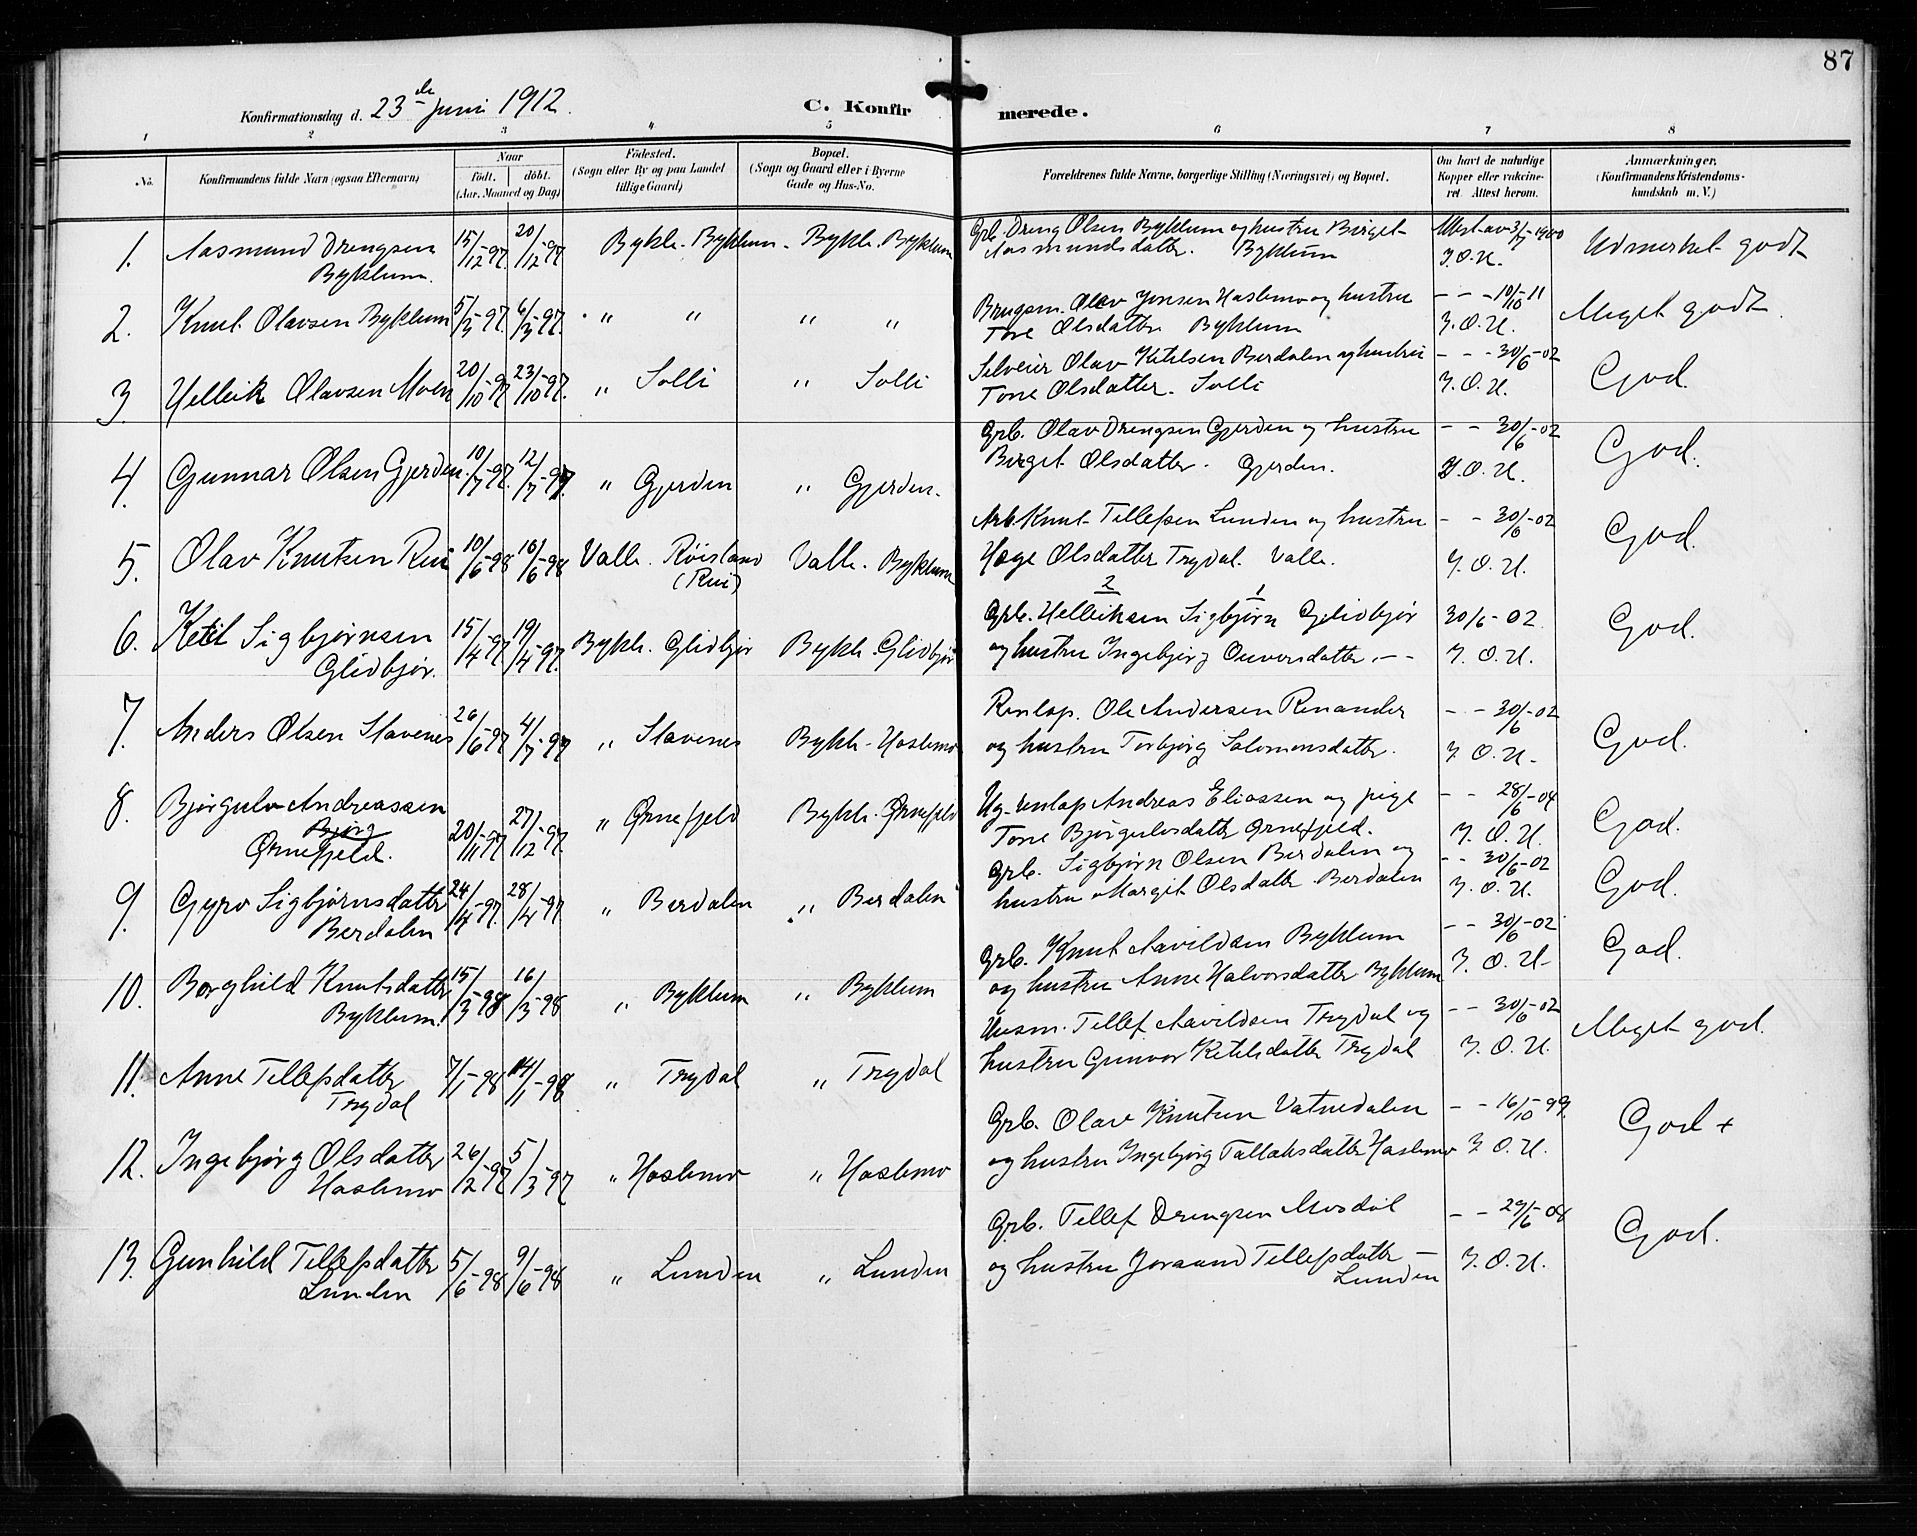 87
Konfirmationsdag d. 23de juni 1912.
C. Konfirmerede.
1 2 3 4 5 6 7 8
No.
Konfirmandens fulde Navn (ogsaa Efternavn)
Naar
födt. döbt.
(Aar, Maaned og Dag)
Födested.
(Sogn eller By og paa Landet
tillige Gaard)
Bopæl.
(Sogn og Gaard eller i Byerne
Gade og Hus-No.
Forældrenes fulde Navne, borgerlige Stilling (Næringsvei) og Bopæl.
Om havt de naturlige
Kopper eller vakcine-
ret. Attest herom.
Anmærkninger.
(Konfirmandens Kristendoms-
kundskab m. V.)
1. Aasmund Drengsen 15/12-97 20/12-97 Bykle. Byklum. Bykle. Byklum Grb. Dreng Olsen Byklum og hustru Birget Attest av 3/7-1900 Udmerket godt
Byklum. Aasmundsdatter. Byklum J.O.U.
2. Knut Olavsen Byklum 5/3-97 6/3-97. " " " " Brugsm. Olav Jonsen Haslemo og hustru - - - 10/10-11 Meget godt.
Tone Olsdatter Byklum J.O.U.
3. Helleik Olavsen Moen 20/10-97 23/10-97. " Solli " Solli Selveier Olav Ketelsen Berdalen og hustru - - - 30/6-02 God.
Tone Olsdatter. Solli J.O.U.
4. Gunnar Olsen Gjerden. 10/7-97. 12/7-97. " Gjerden " Gjerden. Grb. Olav Drengsen Gjerden og hustru - - 30/6-02 God.
Birget Olsdatter. Gjerden. J.O.U.
5. Olav Knutsen Rui 10/6-98 16/6-98 Valle. Röisland Valle. Byklum Arb. Knut Tellefsen Lunden og hustru - - 30/6-02 God.
(Rui) Hæge Olsdatter Trydal. Valle. J.O.U.
2 1
6. Ketil Sigbjørnsen 15/4-97 19/4-97. Bykle. Glidbjør Bykle. Glidbjør Grb. Helleiksen Sigbjørn Glidbjør 30/6-02. God.
Glidbjør. og hustru Ingebjørg Ouversdatter. - - J.O.U.
7. Anders Olsen Stavenes 26/6-97 4/7-97 " Stavenes Bykle. Haslemo Renlap. Ole Andersen Renander - - 30/6-02 God.
og hustru Torbjørg Salomonsdatter. J.O.U.
8. Bjørgulv Andreassen 20/11-97 27/12-97. " Ørnefjeld Bykle. Ørnefjeld Ug. renlap Andreas Eliassen og pige - - 28/6-04 God.
Bjørg
Ørnefjeld. Tone Bjørgulvsdatter Ørnefjeld. J.O.U.
9. Gyro Sigbjørnsdatter 24/4-97. 28/4-97. " Berdalen " Berdalen Grb. Sigbjørn Olsen Berdalen og - - 30/6-02 God.
Berdalen hustru Margit Olsdatter Berdalen J.O.U.
10. Borghild Knutsdatter 15/3-98 16/3-98 " Byklum " Byklum Grb. Knut Aavildsen Byklum - - 30/6-02 God.
Byklum. og hustru Anne Halvorsdatter Byklum J.O.U.
11. Anne Tellefsdatter 7/1-98 14/1-98 " Trydal " Trydal Husm. Tellef Aavildsen Trydal og - - 30/6-02 Meget god.
Trydal hustru Gunvor Ketelsdatter Trydal J.O.U.
12. Ingebjørg Olsdatter 26/2-97 5/3-97 " Haslemo " Haslemo Grb. Olav Knutsen Vatnedalen - - 16/10 99. God +
Haslemo og hustru Ingebjørg Tallaksdatter Haslemo J.O.U.
13. Gunhild Tellefsdatter 5/6-98 9/6-98 " Lunden " Lunden Grb. Tellef Drengsen Mosdöl - - 29/6-04 God.
Lunden og hustru Joraand Tellefsdatter - J.O.U.
Lunden